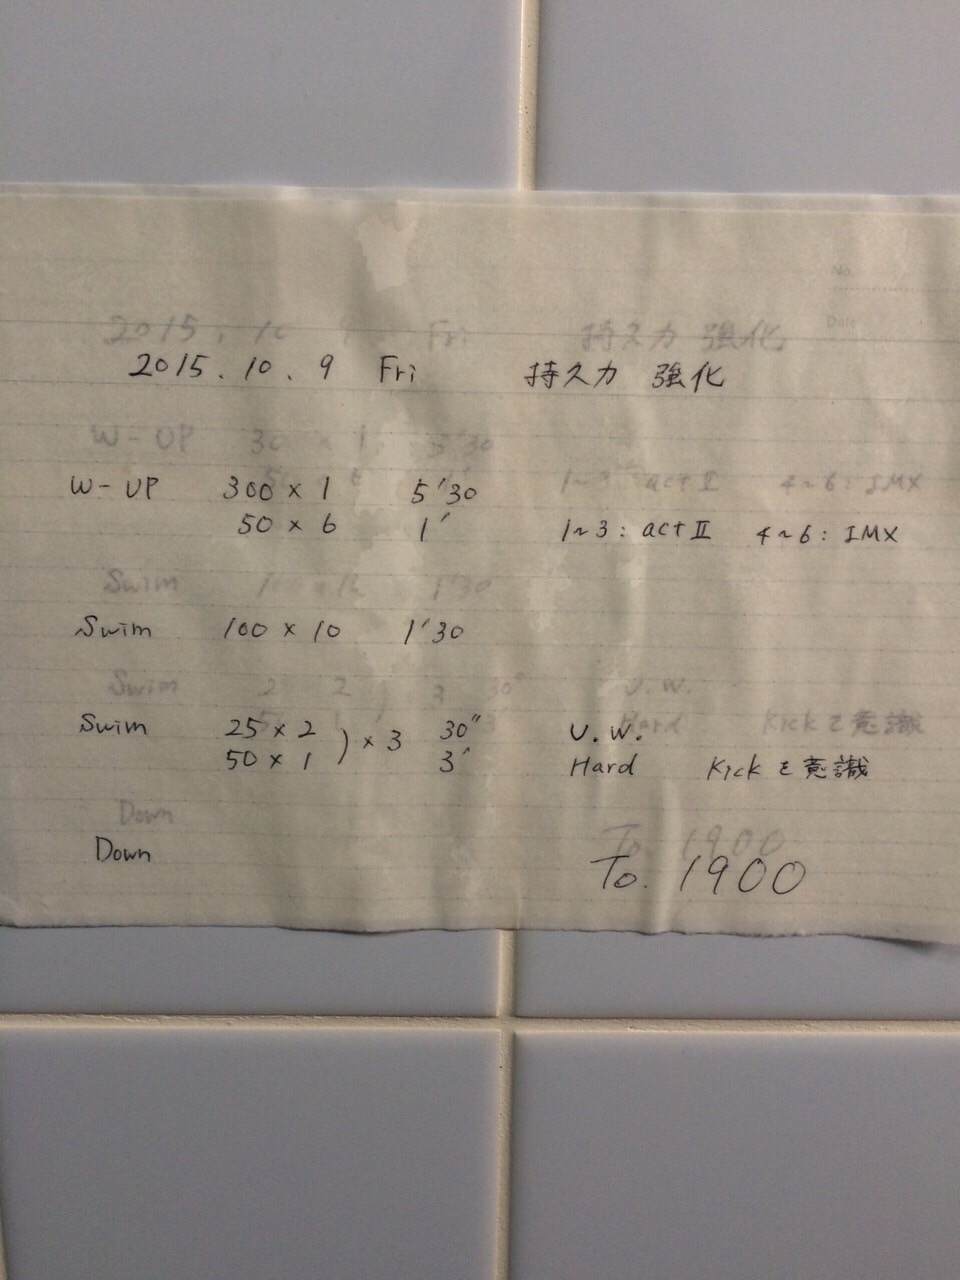 No.
Date
2015. 10. 9 Fri 持久力 強化
W-UP 300 × 1 5'30
50 × 6 1' 1~3: act II 4~6: IMX
Swim 100 × 10 1'30
Swim 25 × 2 ) × 3 30" U.W.
50 × 1 3' Hard Kickを意識
Down
To. 1900